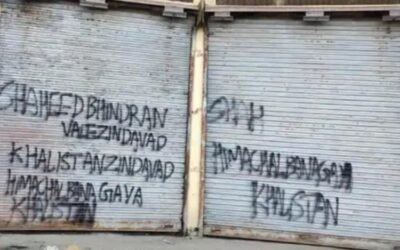 SHAHEED BHINDRAN
VALEZINDAVAD
KHALISTANZINDAVAD
HIMACHAL BANA GAYA
KHALISTAN
HIMACHAL BANAGAYA
KHALISTAN